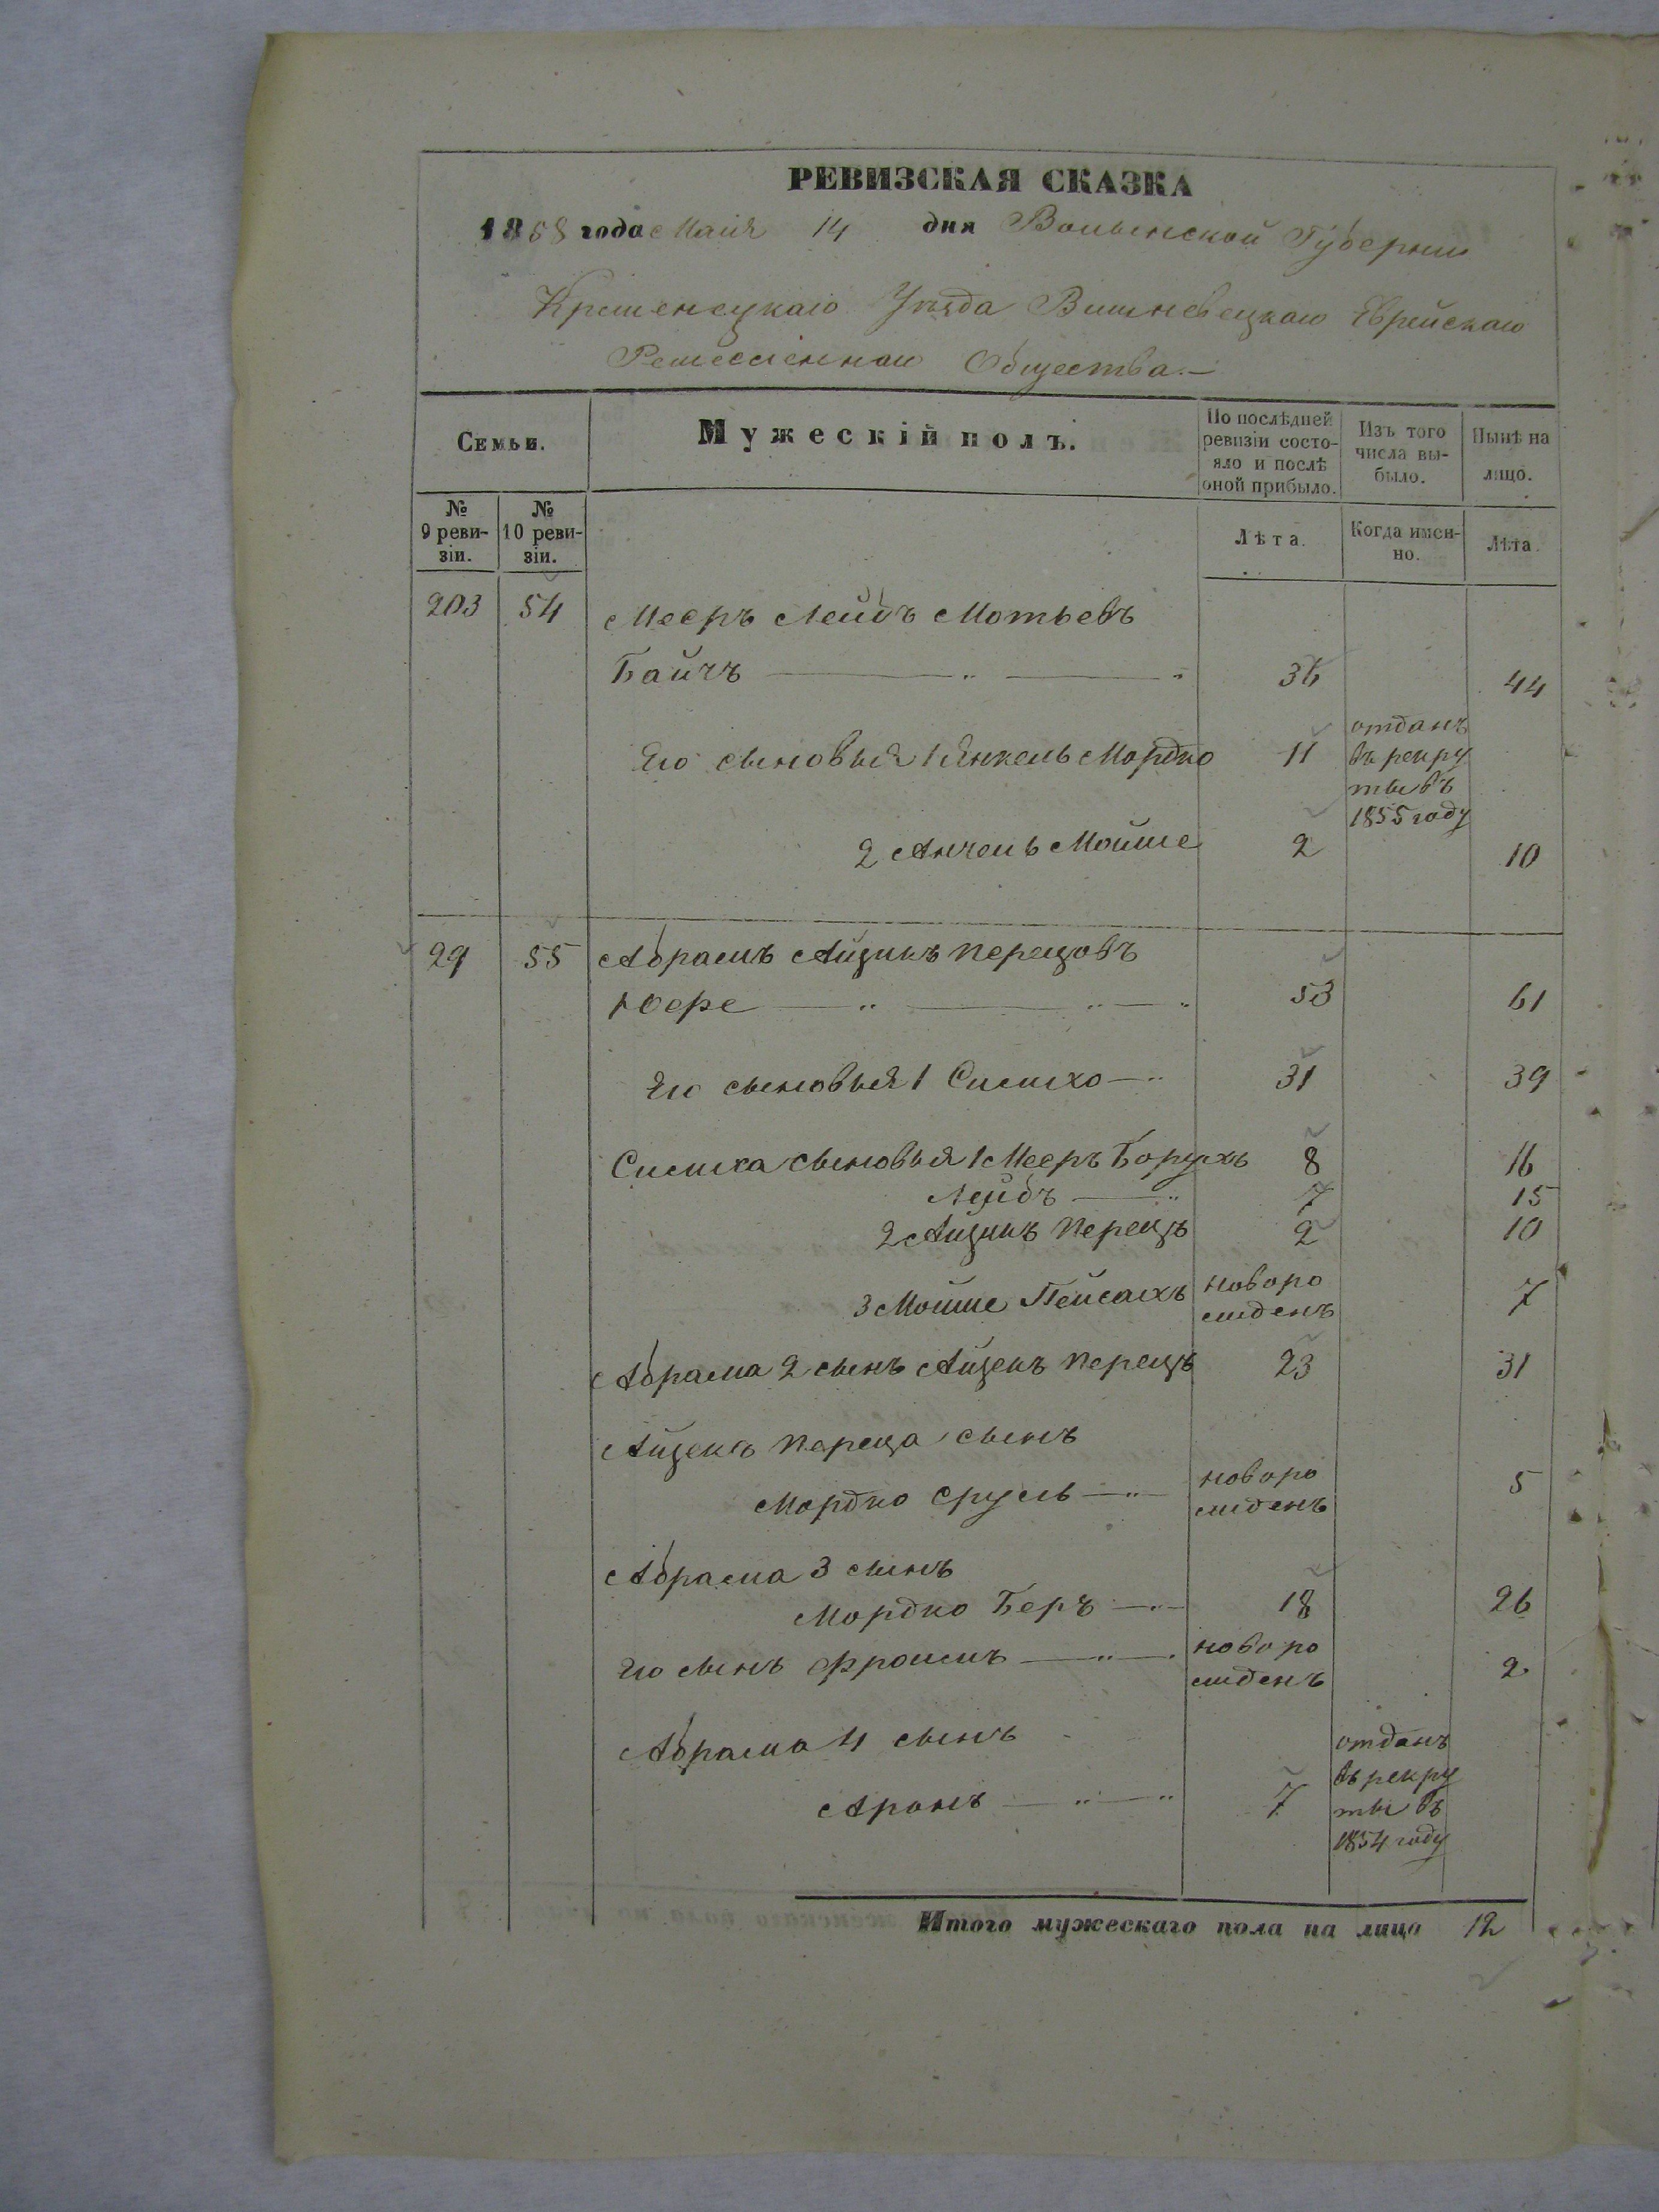 РЕВИЗСКАЯ СКАЗКА
1858 года Маія 14 дня Волынской Губерніи
Кременецкаго Уѣзда Вишневецкаго Еврейскаго
Ремесленнаго Общества.—
Семьи.
Мужескій полъ.
По послѣдней ревизіи состо-яло и послѣ оной прибыло.
Изъ того числа вы-было.
Нынѣ на лицо.
№ 9 реви-зіи.
№ 10 реви-зіи.
Лѣта.
Когда имен-но.
Лѣта.
203 54 Мееръ Лейбъ Мотьевъ
Байчъ 36 44
Его сыновья 1 Янкель Мордко 11 отданъ въ рекру ты въ 1855 году
2 Анчель Мойше 2 10
29 55 Абрамъ Айзикъ Перецовъ
Юфе 53 61
Его сыновья 1 Симхо 31 39
Симха сыновья 1 Мееръ Борухъ 8 16
Лейбъ 7 15
2 Айзикъ Перецъ 2 10
3 Мойше Пейсахъ новоро жденъ 7
Абрама 2 сынъ Айзекъ Перецъ 23 31
Айзекъ Переца сынъ
Мордко Сруль новоро жденъ 5
Абрама 3 сынъ
Мордко Беръ 18 26
Его сынъ Фроимъ новоро жденъ 2
Абрама 4 сынъ
Аронъ 7 отданъ въ рекру ты въ 1854 году
Итого мужескаго пола на лицо 12